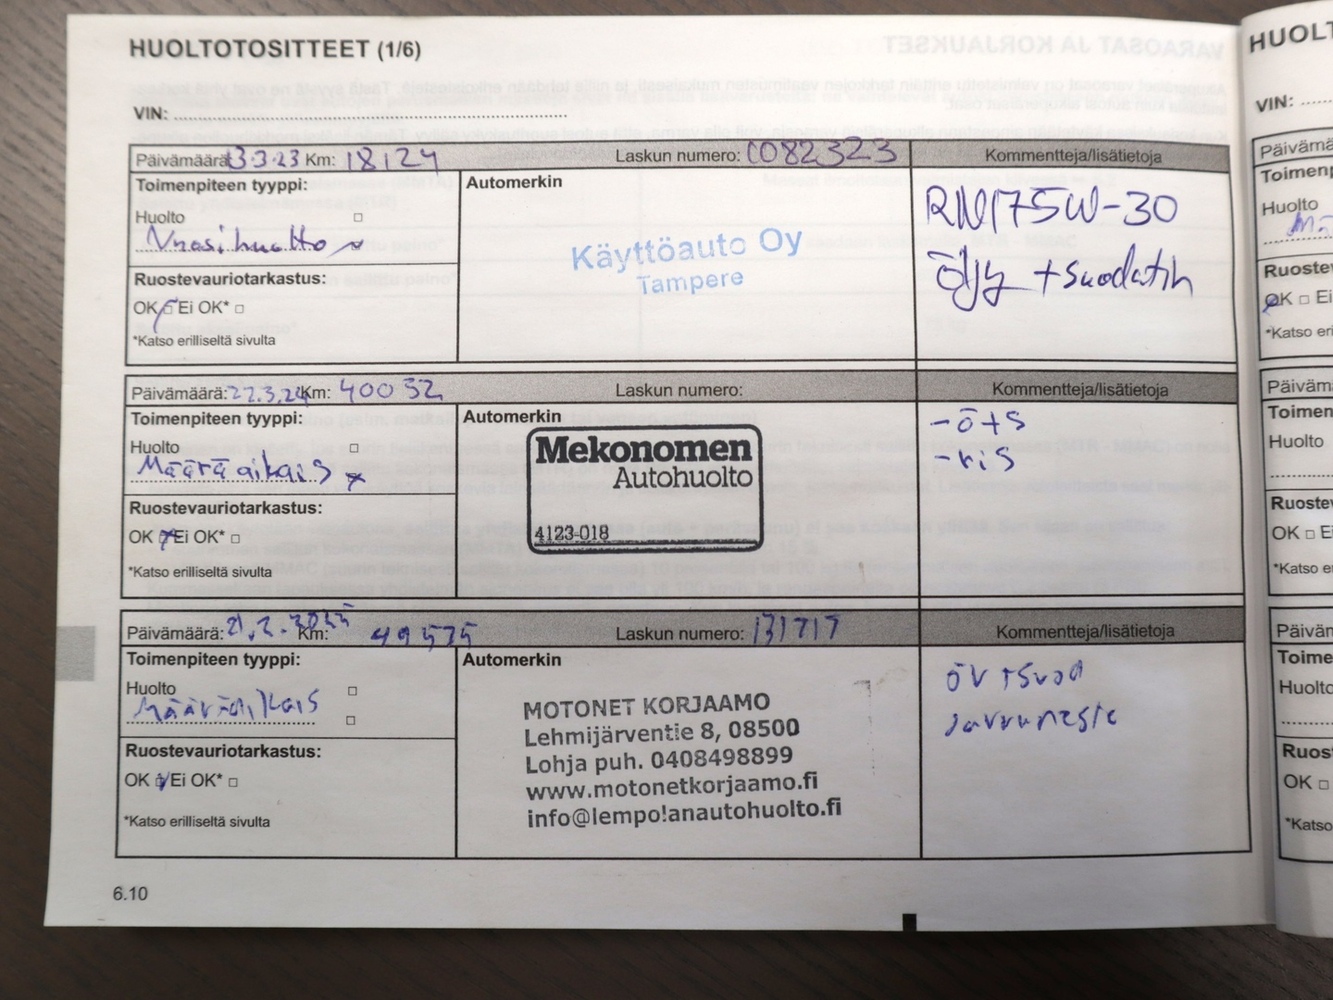 HUOLTOTOSITTEET (1/6)
VIN:
Päivämäärä: 13.3.23 Km: 18124 Laskun numero: C082323 Kommentteja/lisätietoja
Toimenpiteen tyyppi: Automerkin
Huolto
Vuosihuolto
Ruostevauriotarkastus:
OK Ei OK*
*Katso erilliseltä sivulta
Käyttöauto Oy
Tampere
RN17 5W-30
Öljy + suodatin
Päivämäärä: 22.3.24 Km: 40032 Laskun numero: Kommentteja/lisätietoja
Toimenpiteen tyyppi: Automerkin
Huolto
Määräaikais
Ruostevauriotarkastus:
OK Ei OK*
*Katso erilliseltä sivulta
Mekonomen
Autohuolto
4123-018
-ö+s
-ris
Päivämäärä: 21.2.2025 Km: 49575 Laskun numero: 131717 Kommentteja/lisätietoja
Toimenpiteen tyyppi: Automerkin
Huolto
Määräaikais
Ruostevauriotarkastus:
OK Ei OK*
*Katso erilliseltä sivulta
MOTONET KORJAAMO
Lehmijärventie 8, 08500
Lohja puh. 0408498899
www.motonetkorjaamo.fi
info@lempolanautohuolto.fi
öv+suod
Jarruneste
6.10
HUOLT
VIN:
Päivämä
Toimenp
Huolto
Mä
Ruostev
OK Ei
*Katso eri
Päiväm
Toimen
Huolto
Ruostev
OK E
*Katso e
Päivän
Toime
Huolto
Ruos
OK
*Katso